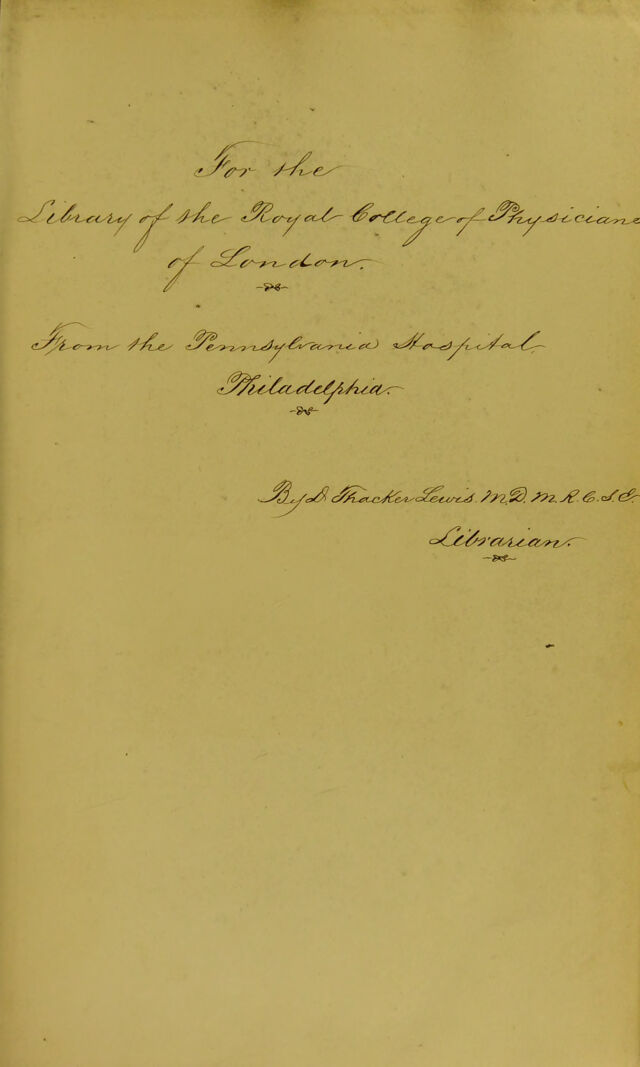 For the
Library of the Royal College of Physicians
of London.
From the Pennsylvania Hospital
Philadelphia.
By D. Thacker Lewis M.D. M.R.C.S.E.
Librarian.